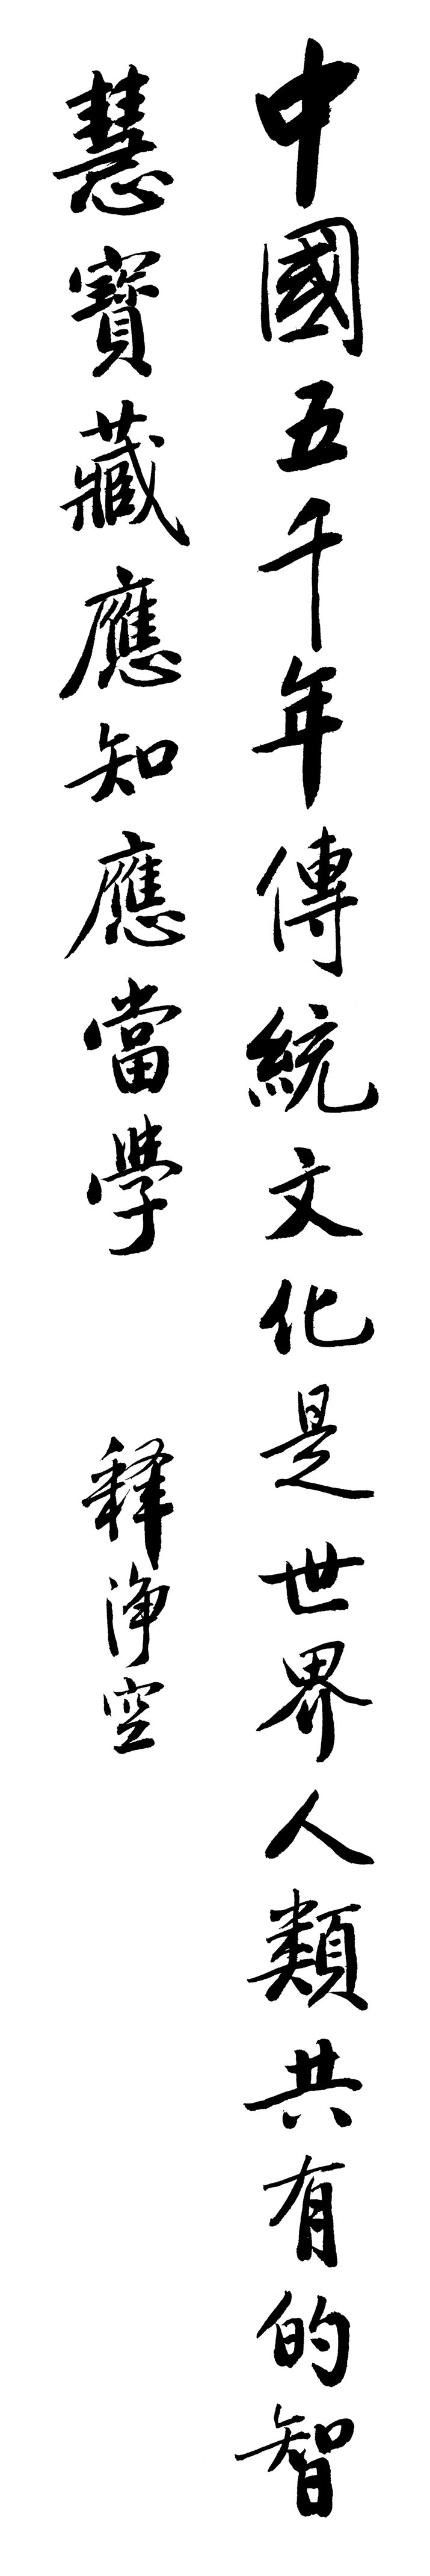 中國五千年傳統文化是世界人類共有的智
慧寶藏應知應當學
釋淨空